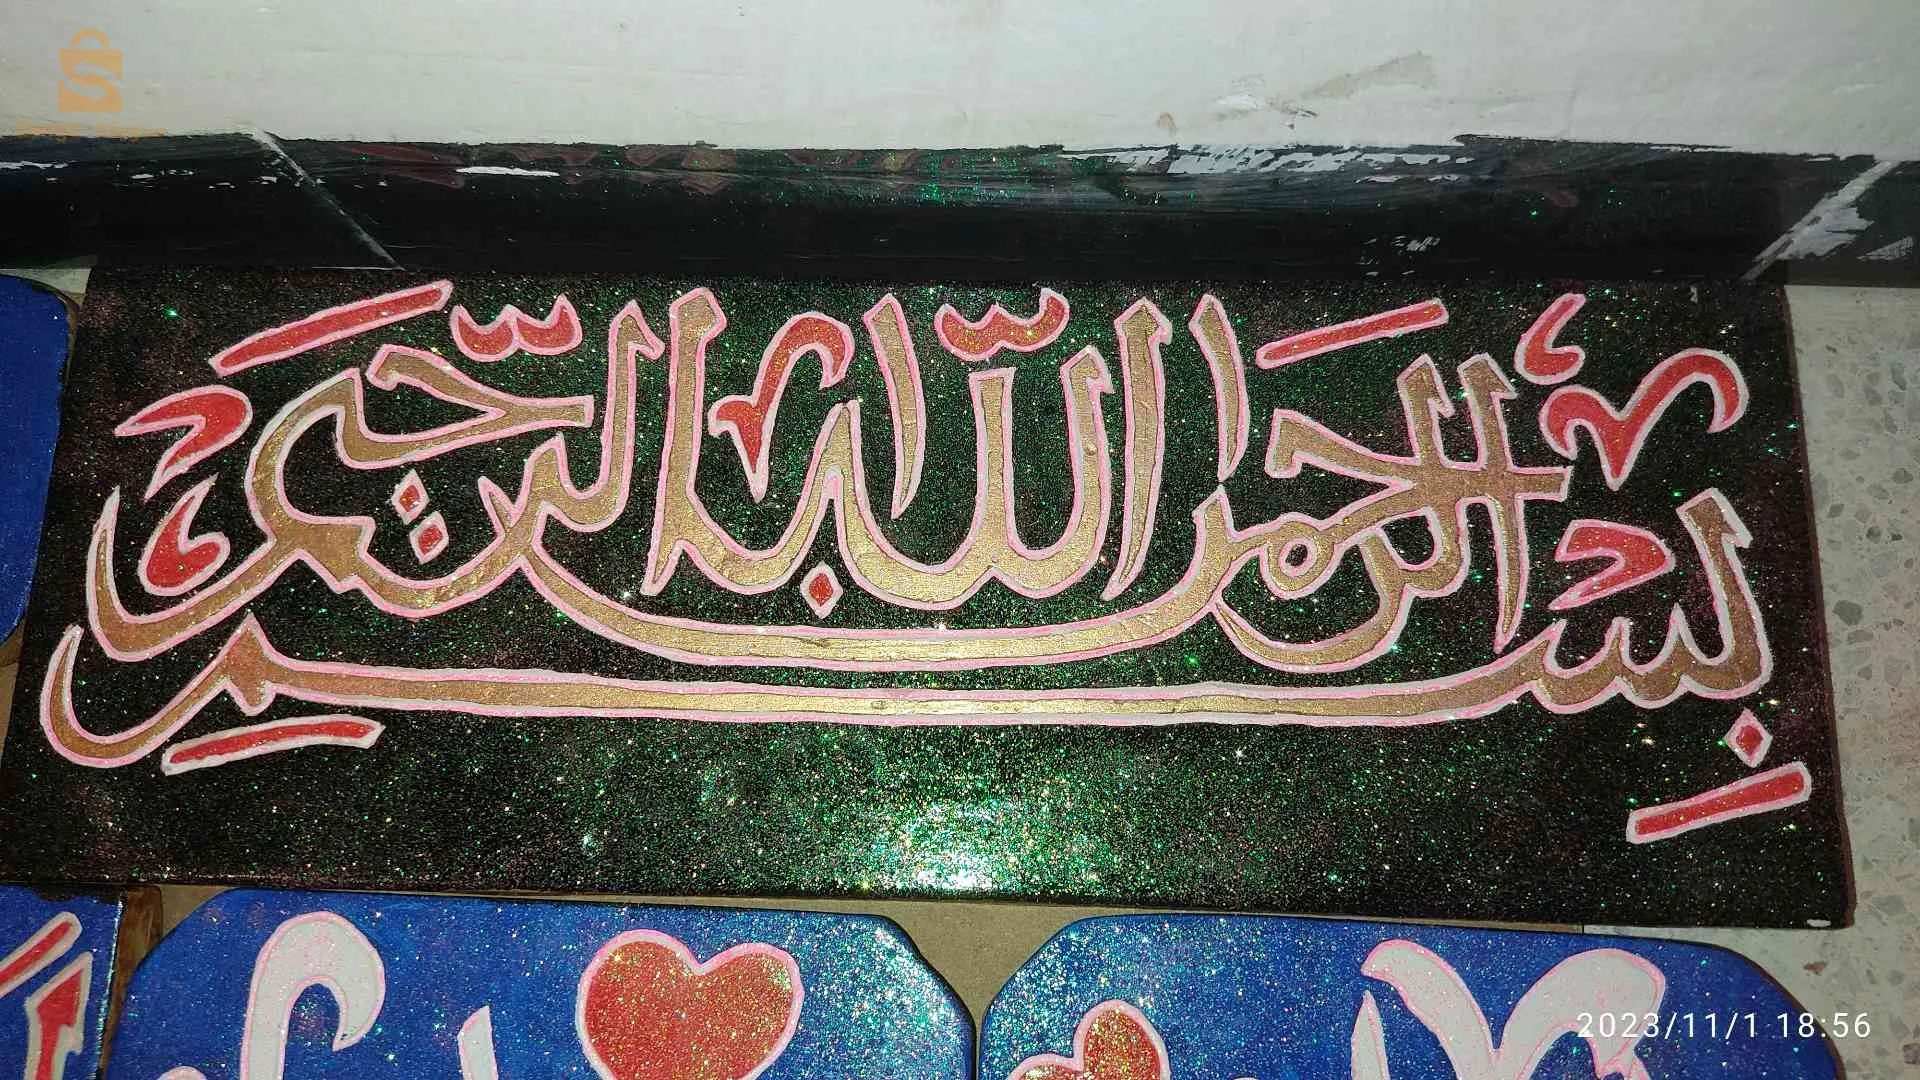 بسم الله الرحمن الرحيم
2023/11/1 18:56